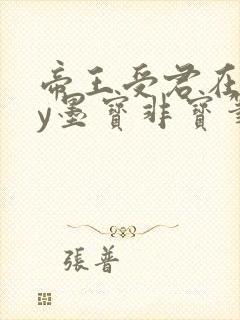 帝王受君在
y墨寶非寶
張普